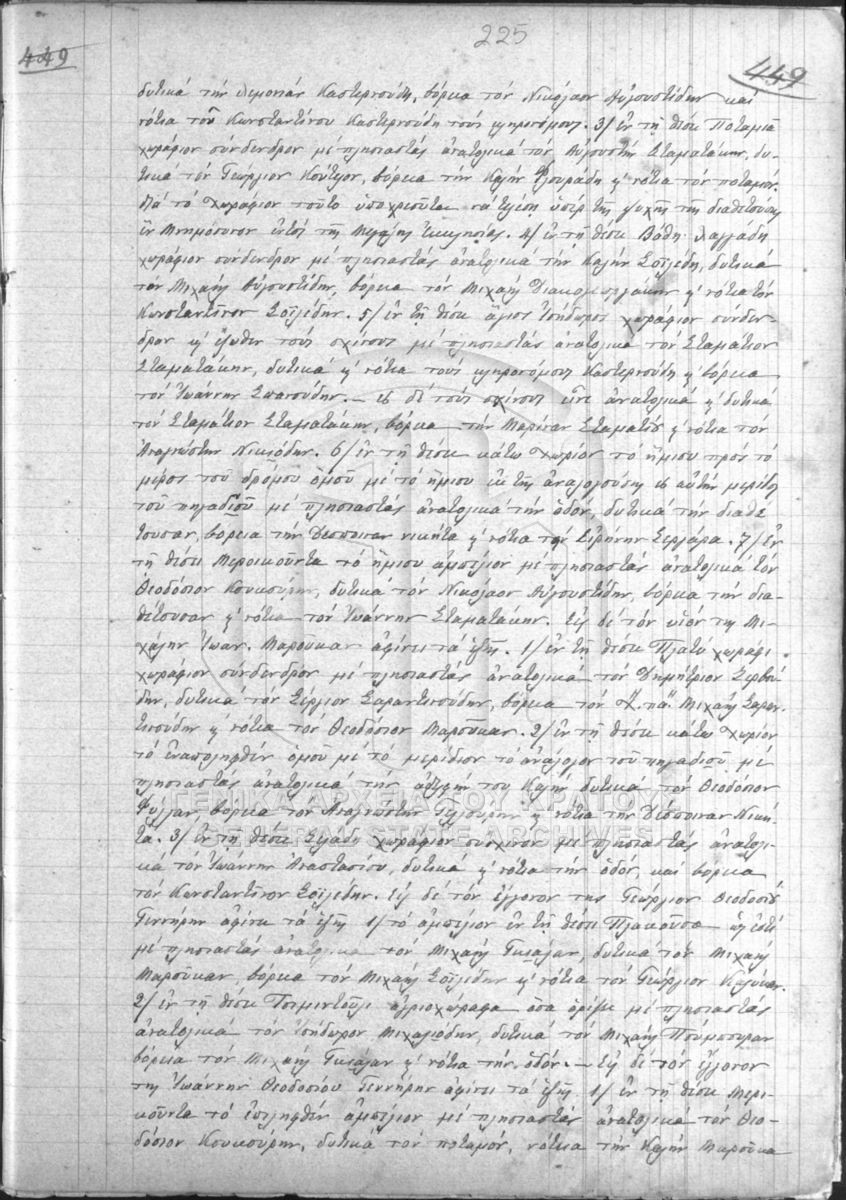 225
449
449
δυτικά τήν Λεμονιάν Καστερνούδη, βόρεια τόν Νικόλαον Αὐγουστίδην καί
νότια τοῦ Κωνσταντίνου Καστερνούδη τούς κληρονόμους. 3/ ἐν τῇ θέσει Ποταμιά
χωράφιον σύνδενδρον μέ πλησιαστάς ἀνατολικά τόν Αὐγουστήν Σταματάκην, δυ-
τικά τόν Γεώργιον Κούτλον, βόρεια τήν Καλήν καί νότια τόν ποταμόν.
Διά τό χωράφιον τοῦτο ὑποχρεοῦται νά τελέσῃ ὑπέρ τῆς ψυχῆς τῆς διαθετούσης
ἕν Μνημόσυνον ἐντός τῆς Μεγάλης Ἐκκλησίας. 4/ ἐν τῇ θέσει Βαθύ Λαγγάδι
χωράφιον σύνδενδρον μέ πλησιαστάς ἀνατολικά τήν Καλήν Σοϊλέδη, δυτικά
τόν Μιχαήλ Αὐγουστίδην, βόρεια τόν Μιχαήλ Διακομιχαλάκην κ' νότια τόν
Κωνσταντῖνον Σοϊλέδην. 5/ ἐν τῇ θέσει ἅγιος Ἰσίδωρος χωράφιον σύνδεν-
δρον κ' ἔξωθεν τούς σχίνους μέ πλησιαστάς ἀνατολικά τόν Σταμάτιον
Σταματάκην, δυτικά κ' νότια τούς κληρονόμους Καστερνούδη κ' βόρεια
τόν Ἰωάννην Σπανούδην. – εἰς δέ τούς σχίνους εἶνε ἀνατολικά κ' δυτικά
τόν Σταμάτιον Σταματάκην, βόρεια τήν Μαρίναν Σταματίου κ' νότια τόν
Ἀναγνώστην Νικιάδην. 6/ ἐν τῇ θέσει κάτω χωρίον τό ἥμισυ πρός τό
μέρος τοῦ δρόμου ὁμοῦ μέ τό ἥμισυ ἐκ τῆς ἀναλογούσης εἰς αὐτήν μερίδος
τοῦ πηγαδιοῦ μέ πλησιαστάς ἀνατολικά τήν ὁδόν, δυτικά τήν διαθέ
τουσαν, βόρεια τήν Δέσποιναν νικήτα κ' νότια τήν Εἰρήνην Σεργάρα. 7/ ἐν
τῇ θέσει Μερσικοῦντα τό ἥμισυ ἀμπέλιον μέ πλησιαστάς ἀνατολικά τόν
Θεοδόσιον Κουκούρην, δυτικά τόν Νικόλαον Αὐγουστίδην, βόρεια τήν δια-
θέτουσαν κ' νότια τόν Ἰωάννην Σταματάκην. Εἰς δέ τόν υἱόν της Μι-
χάλην Ἰωαν. Μαροῦκαν ἀφίνει τά ἑξῆς. 1/ ἐν τῇ θέσει Πλατύ χωράφι
χωράφιον σύνδενδρον μέ πλησιαστάς ἀνατολικά τόν Δημήτριον Σερβού-
δην, δυτικά τόν Σέργιον Σαραντινούδην, βόρεια τόν Χ"πᾶ" Μιχαήλ Σαραν-
τινούδην κ' νότια τόν Θεοδόσιον Μαροῦκαν. 2/ ἐν τῇ θέσει κάτω χωρίον
τό ἐναποληφθέν ὁμοῦ μέ τό μερίδιον τό ἀνάλογον τοῦ πηγαδιοῦ μέ
πλησιαστάς ἀνατολικά τήν ἀδελφήν του Καλήν δυτικά τόν Θεοδόσιον
βόρεια τόν Ἀναγνώστην κ' νότια τήν Δέσποιναν Νική-
τα. 3/ ἐν τῇ θέσει Σιλάδη χωράφιον σύσχινον μέ πλησιαστάς ἀνατολι-
κά τόν Ἰωάννην Ἀναστασίου, δυτικά κ' νότια τήν ὁδόν, καί βόρεια
τόν Κωνσταντῖνον Σοϊλέδην. Εἰς δέ τόν ἔγγονον της Γεώργιον Θεοδοσίου
Γεννήρην ἀφίνει τά ἑξῆς 1/ τό ἀμπέλιον ἐν τῇ θέσει Πλακοῦσα
μέ πλησιαστάς ἀνατολικά τόν Μιχαήλ Γκιάλαν, δυτικά τόν Μιχαήλ
Μαροῦκαν, βόρεια τόν Μιχαήλ Σοϊλέδην κ' νότια τόν Γεώργιον
2/ ἐν τῇ θέσει Τσιμιντοῦλι ἀγριοχώραφα ὅσα ὁρίζει μέ πλησιαστάς
ἀνατολικά τόν Ἰσίδωρον Μιχαλιόδην, δυτικά τόν Μιχαήλ
βόρεια τόν Μιχαήλ Γκιάλαν κ' νότια τήν ὁδόν. – Εἰς δέ τόν ἔγγονον
της Ἰωάννην Θεοδοσίου Γεννήρην ἀφίνει τά ἑξῆς 1/ ἐν τῇ θέσει Μερι-
κοῦντα τό ἀμπέλιον μέ πλησιαστάς ἀνατολικά τόν Θεο-
δόσιον Κουκούρην, δυτικά τόν ποταμόν, νότια τήν Καλήν Μαροῦκα
ΓΕΝΙΚΑ ΑΡΧΕΙΑ ΤΟΥ ΚΡΑΤΟΥΣ
GENERAL STATE ARCHIVES